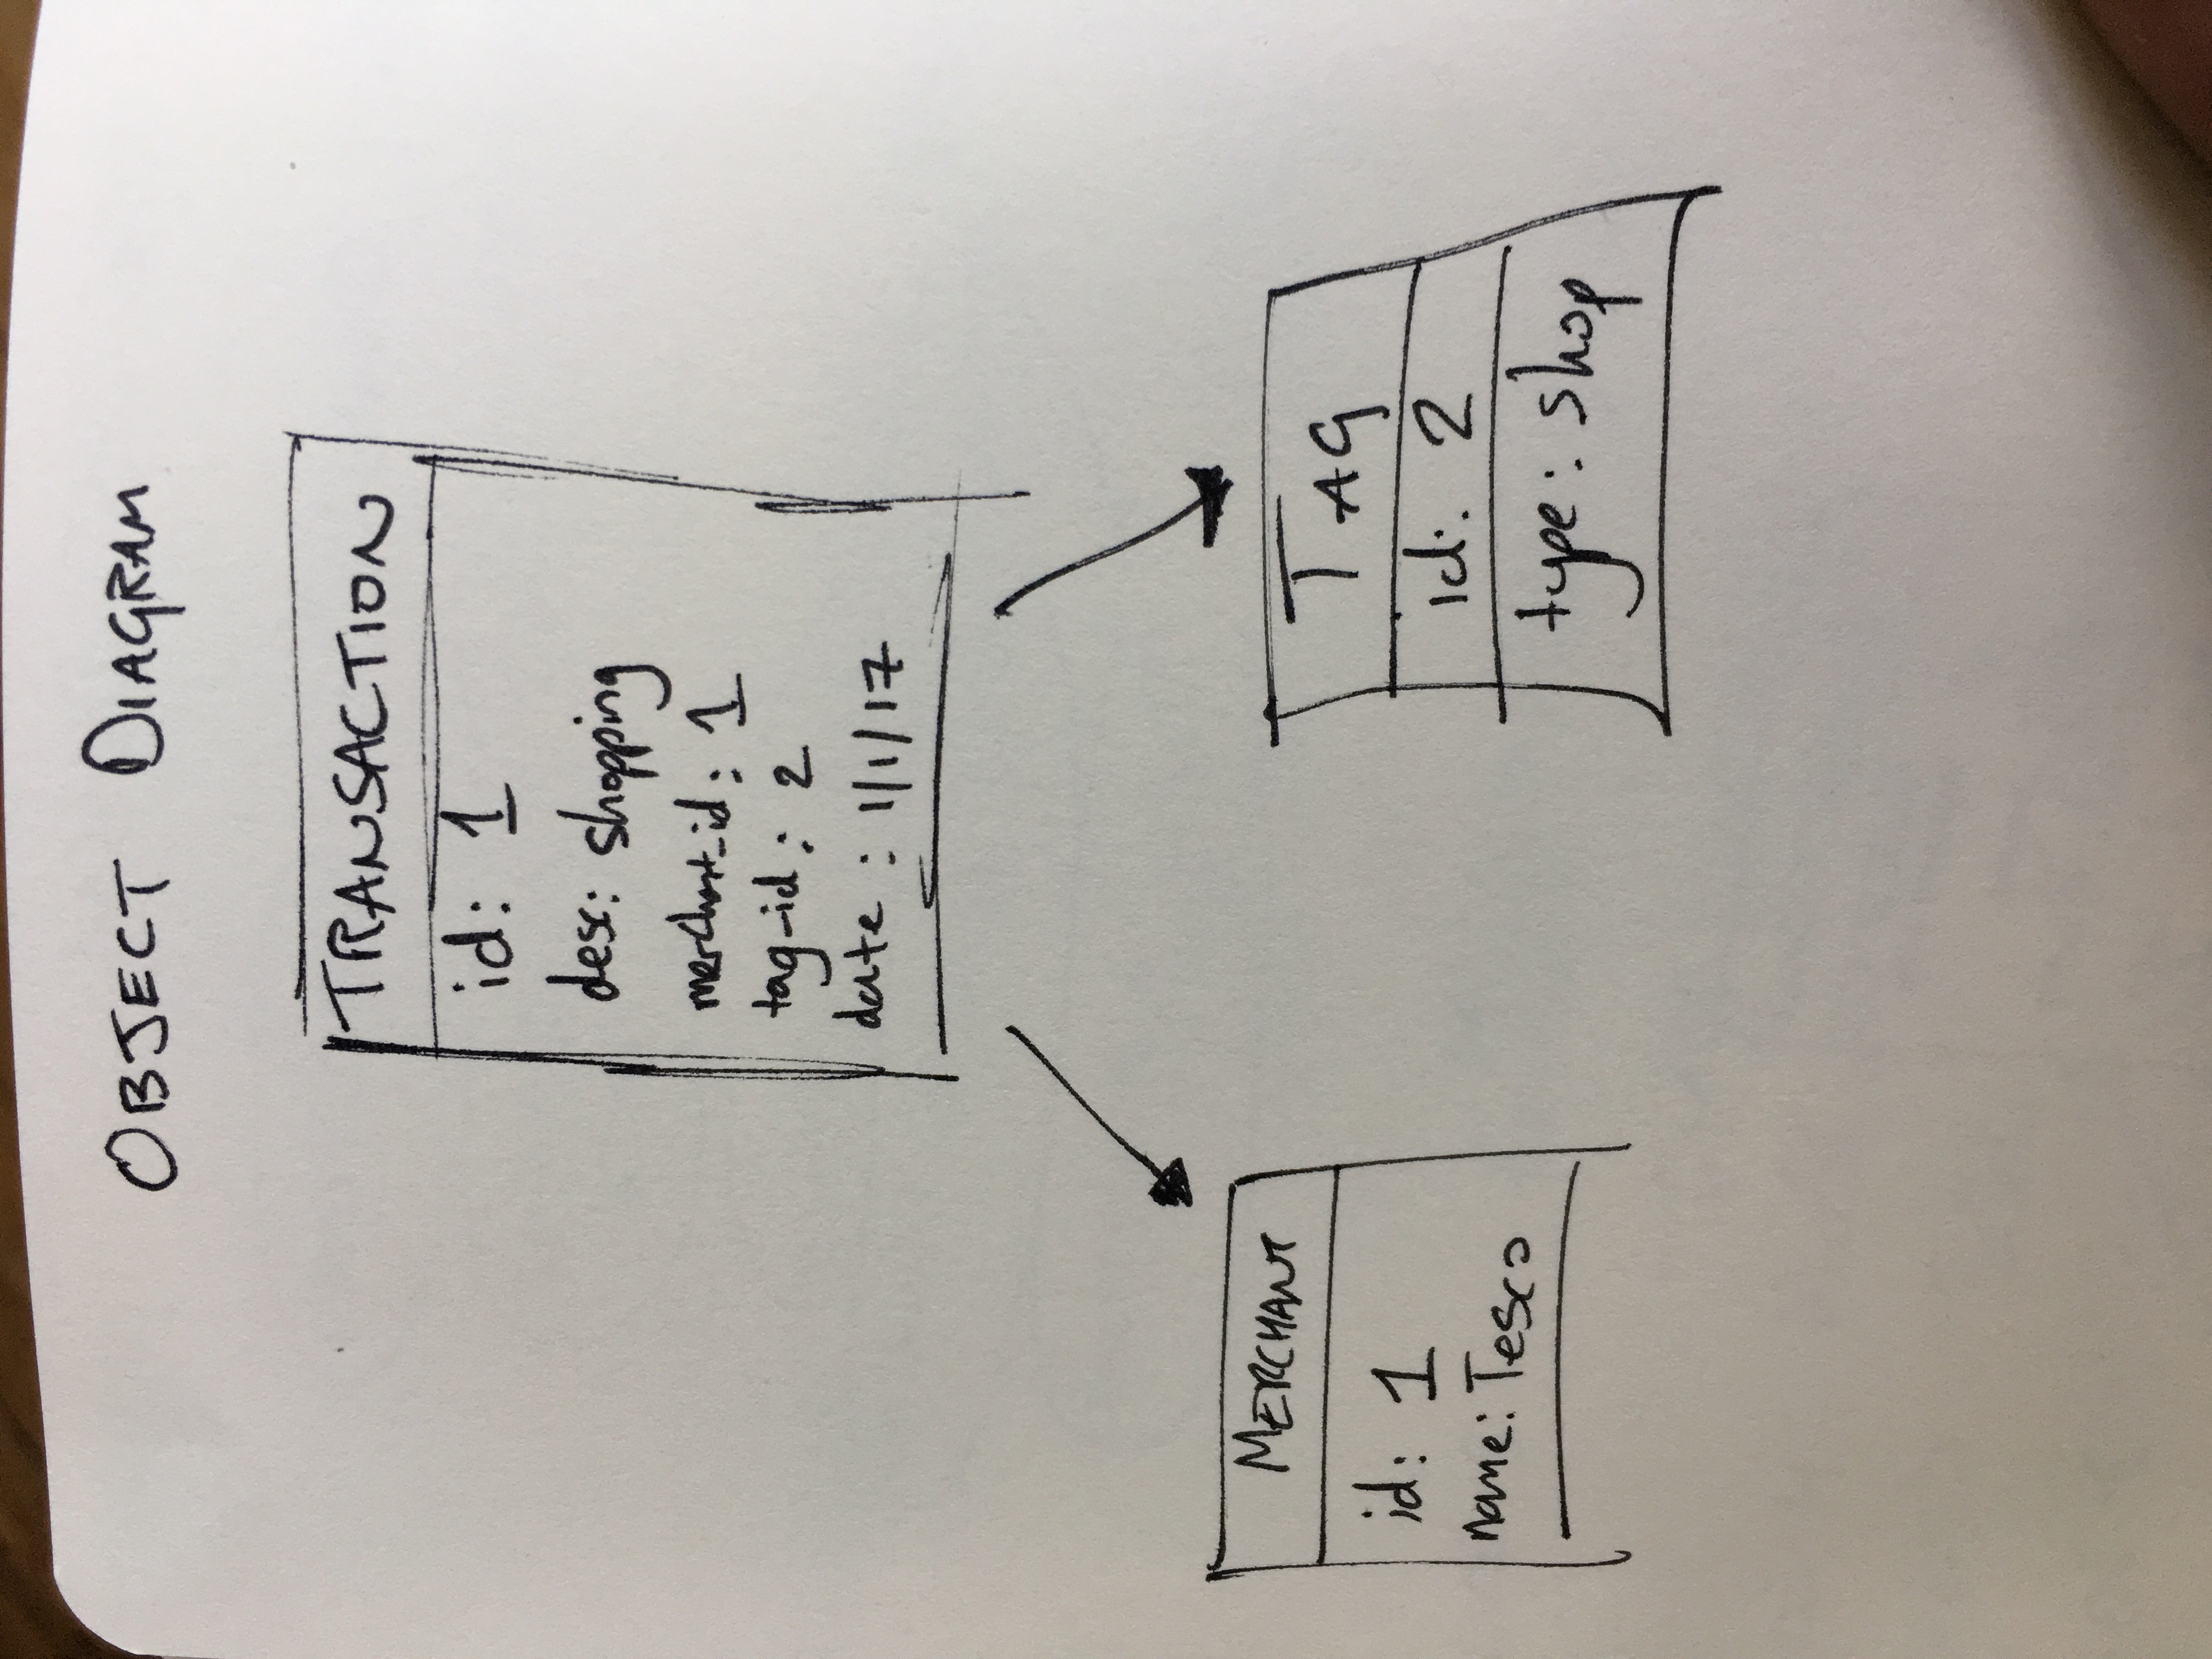 OBJECT DIAGRAM
TRANSACTION
id: 1
desc: shopping
merchant_id: 1
tag_id: 2
date: 1/1/17
MERCHANT
id: 1
name: Tesco
TAG
id: 2
type: shop